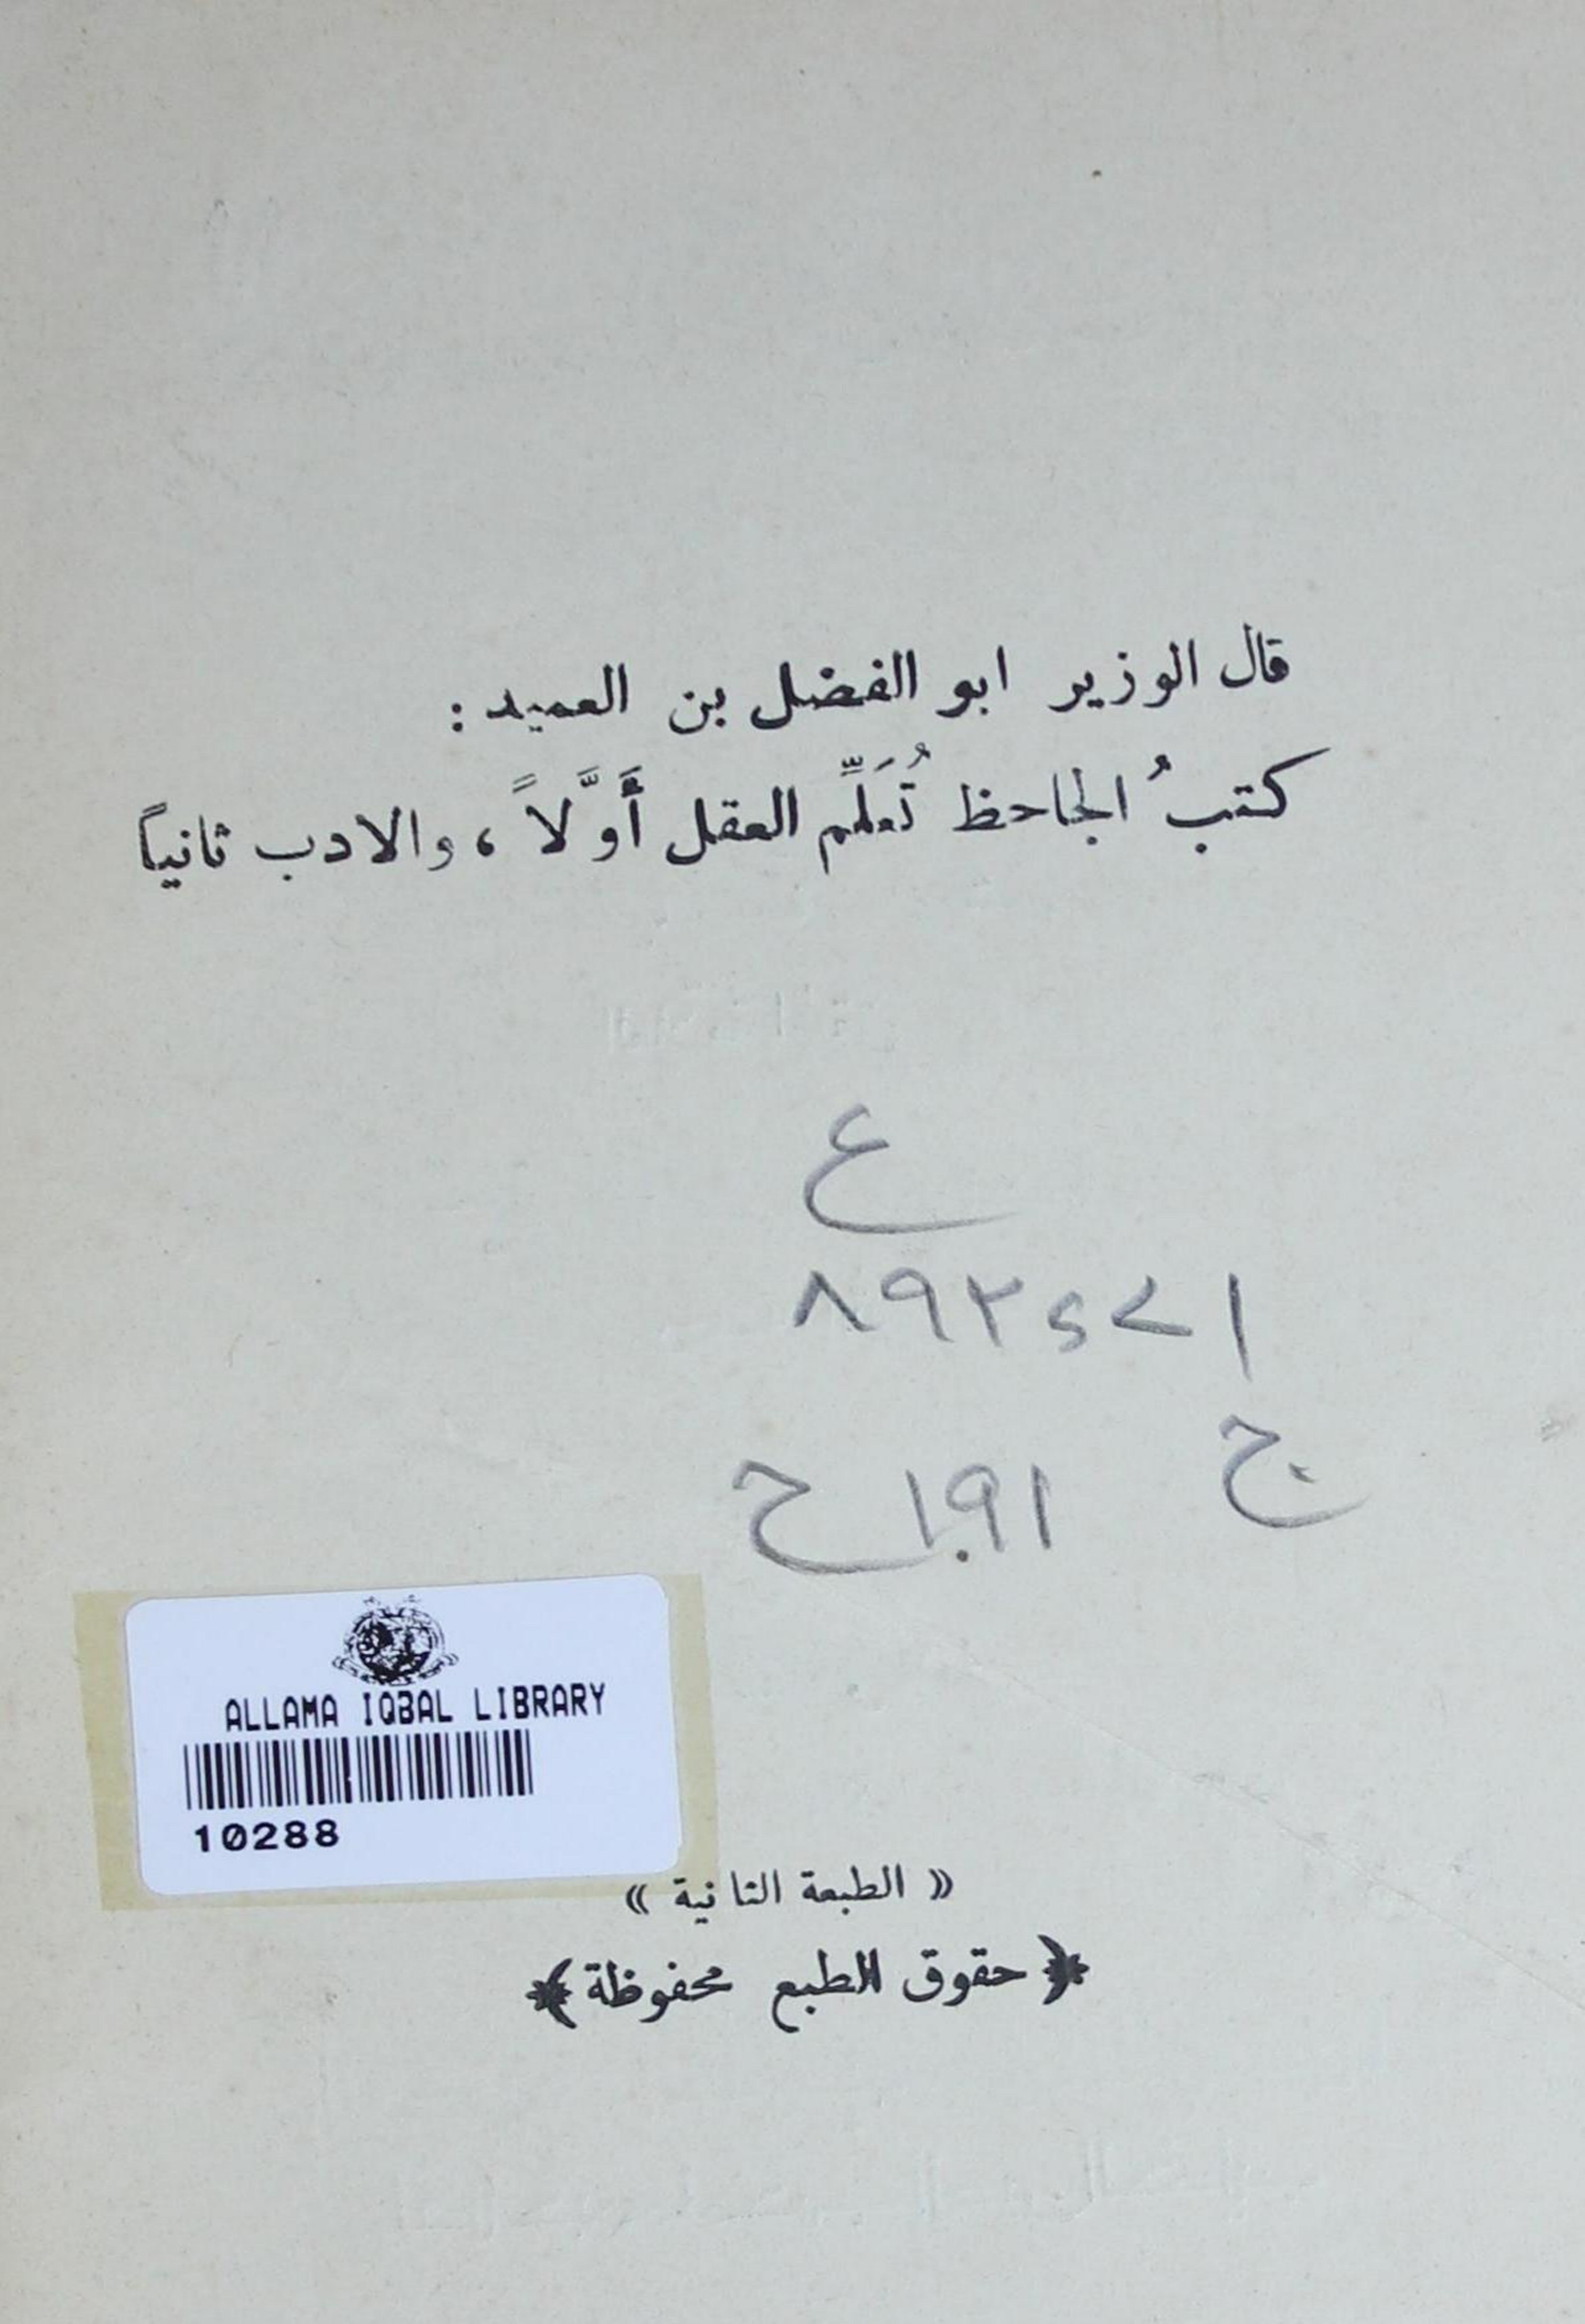 قال الوزير ابو الفضل بن العميد :
كتبُ الجاحظ تُعَلِّم العقل أَوَّلاً ، والادب ثانياً
ع
٨٩٢٥٧١
ج
ح ١٩١
ALLAMA IQBAL LIBRARY
10288
« الطبعة الثانية »
﴿ حقوق الطبع محفوظة ﴾